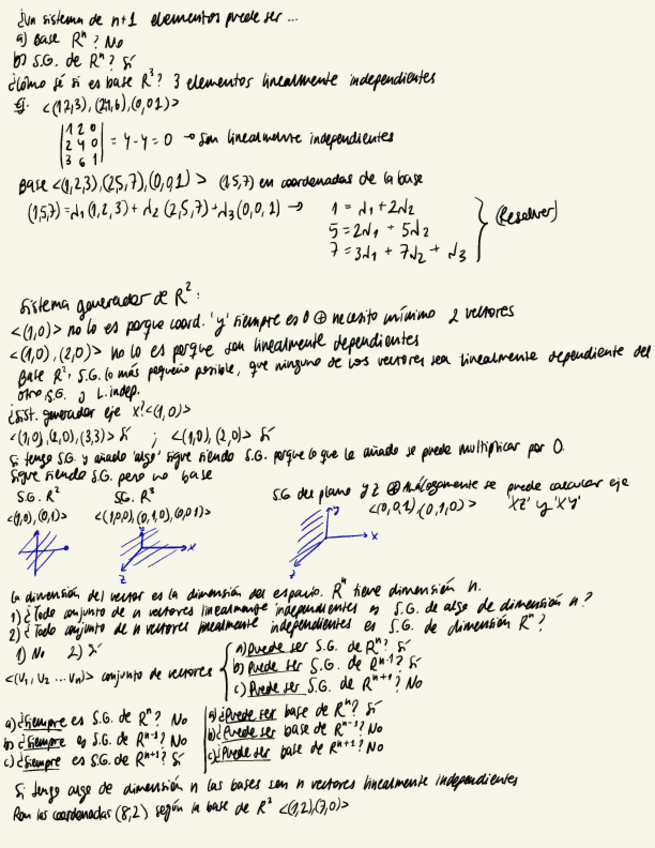 ¿Un sistema de n+1 elementos puede ser ...
a) Base Rⁿ? No
b) S.G. de Rⁿ? Sí
¿Cómo sé si es base R³? 3 elementos linealmente independientes
Ej. <(1,2,3), (2,4,6), (0,0,1)>
|1 2 0|
|2 4 0| = 4-4 = 0 → Son linealmente independientes
|3 6 1|
Base <(1,2,3), (2,5,7), (0,0,1)> (1,5,7) en coordenadas de la base
(1,5,7) = λ₁(1,2,3) + λ₂(2,5,7) + λ₃(0,0,1) → 1 = λ₁ + 2λ₂
5 = 2λ₁ + 5λ₂ (Resolver)
7 = 3λ₁ + 7λ₂ + λ₃
Sistema generador de R²:
<(1,0)> no lo es porque coord. 'y' siempre es 0 ⊕ necesito mínimo 2 vectores
<(1,0), (2,0)> no lo es porque son linealmente dependientes
Base R²: S.G. lo más pequeño posible, que ninguno de los vectores sea linealmente dependiente del
otro, S.G. y L. indep.
¿Sist. generador eje X? <(1,0)>
<(1,0), (2,0), (3,3)> Sí ; <(1,0), (2,0)> Sí
Si tengo S.G. y añado 'algo' sigue siendo S.G. porque lo que le añado se puede multiplicar por 0.
Sigue siendo S.G. pero no base
S.G. R² S.G. R³ S.G del plano yz ⊕ Análogamente se puede calcular eje
<(1,0), (0,1)> <(1,0,0), (0,1,0), (0,0,1)> <(0,0,1), (0,1,0)> 'XZ' y 'XY'
y
x
z
x
z
La dimensión del vector es la dimensión del espacio. Rⁿ tiene dimensión n.
1) ¿Todo conjunto de n vectores linealmente independientes es S.G. de algo de dimensión n?
2) ¿Todo conjunto de n vectores linealmente independientes es S.G. de dimensión Rⁿ?
1) No 2) Sí
<(V₁, V₂ ... Vn)> conjunto de vectores
a) Puede ser S.G. de Rⁿ? Sí
b) Puede ser S.G. de Rⁿ⁻¹? Sí
c) Puede ser S.G. de Rⁿ⁺¹? No
a) ¿Siempre es S.G. de Rⁿ? No
b) ¿Siempre es S.G. de Rⁿ⁻¹? No
c) ¿Siempre es S.G. de Rⁿ⁺¹? Sí
a) ¿Puede ser base de Rⁿ? Sí
b) ¿Puede ser base de Rⁿ⁻¹? No
c) ¿Puede ser base de Rⁿ⁺¹? No
Si tengo algo de dimensión n las bases son n vectores linealmente independientes
Pon las coordenadas (8,2) según la base de R² <(1,2), (7,0)>